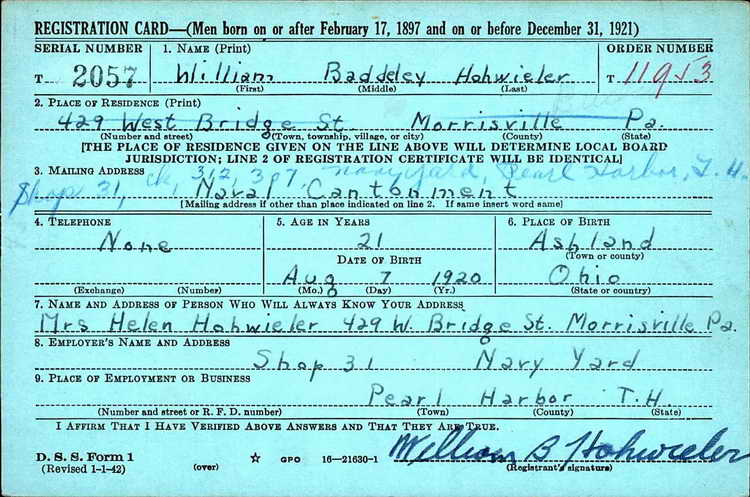 REGISTRATION CARD—(Men born on or after February 17, 1897 and on or before December 31, 1921)
SERIAL NUMBER 1. NAME (Print) ORDER NUMBER
T 2057 William Baddeley Hohwieler T 11953
(First) (Middle) (Last)
2. PLACE OF RESIDENCE (Print)
429 West Bridge St Morrisville Pa.
(Number and street) (Town, township, village, or city) (County) (State)
[THE PLACE OF RESIDENCE GIVEN ON THE LINE ABOVE WILL DETERMINE LOCAL BOARD
JURISDICTION; LINE 2 OF REGISTRATION CERTIFICATE WILL BE IDENTICAL]
3. MAILING ADDRESS
Shop 31, ck, 312,307, Navy Yard, Pearl Harbor, T. H.
Naval Cantonment
[Mailing address if other than place indicated on line 2. If same insert word same]
4. TELEPHONE 5. AGE IN YEARS 6. PLACE OF BIRTH
None 21 Ashland
DATE OF BIRTH (Town or county)
Aug 7 1920 Ohio
(Exchange) (Number) (Mo.) (Day) (Yr.) (State or country)
7. NAME AND ADDRESS OF PERSON WHO WILL ALWAYS KNOW YOUR ADDRESS
Mrs Helen Hohwieler 429 W. Bridge St. Morrisville Pa.
8. EMPLOYER'S NAME AND ADDRESS
Shop 31 Navy Yard
9. PLACE OF EMPLOYMENT OR BUSINESS
Pearl Harbor T.H.
(Number and street or R. F. D. number) (Town) (County) (State)
I AFFIRM THAT I HAVE VERIFIED ABOVE ANSWERS AND THAT THEY ARE TRUE.
William B Hohwieler
D. S. S. Form 1
(Revised 1-1-42) (over) ☆ GPO 16—21630-1 (Registrant's signature)